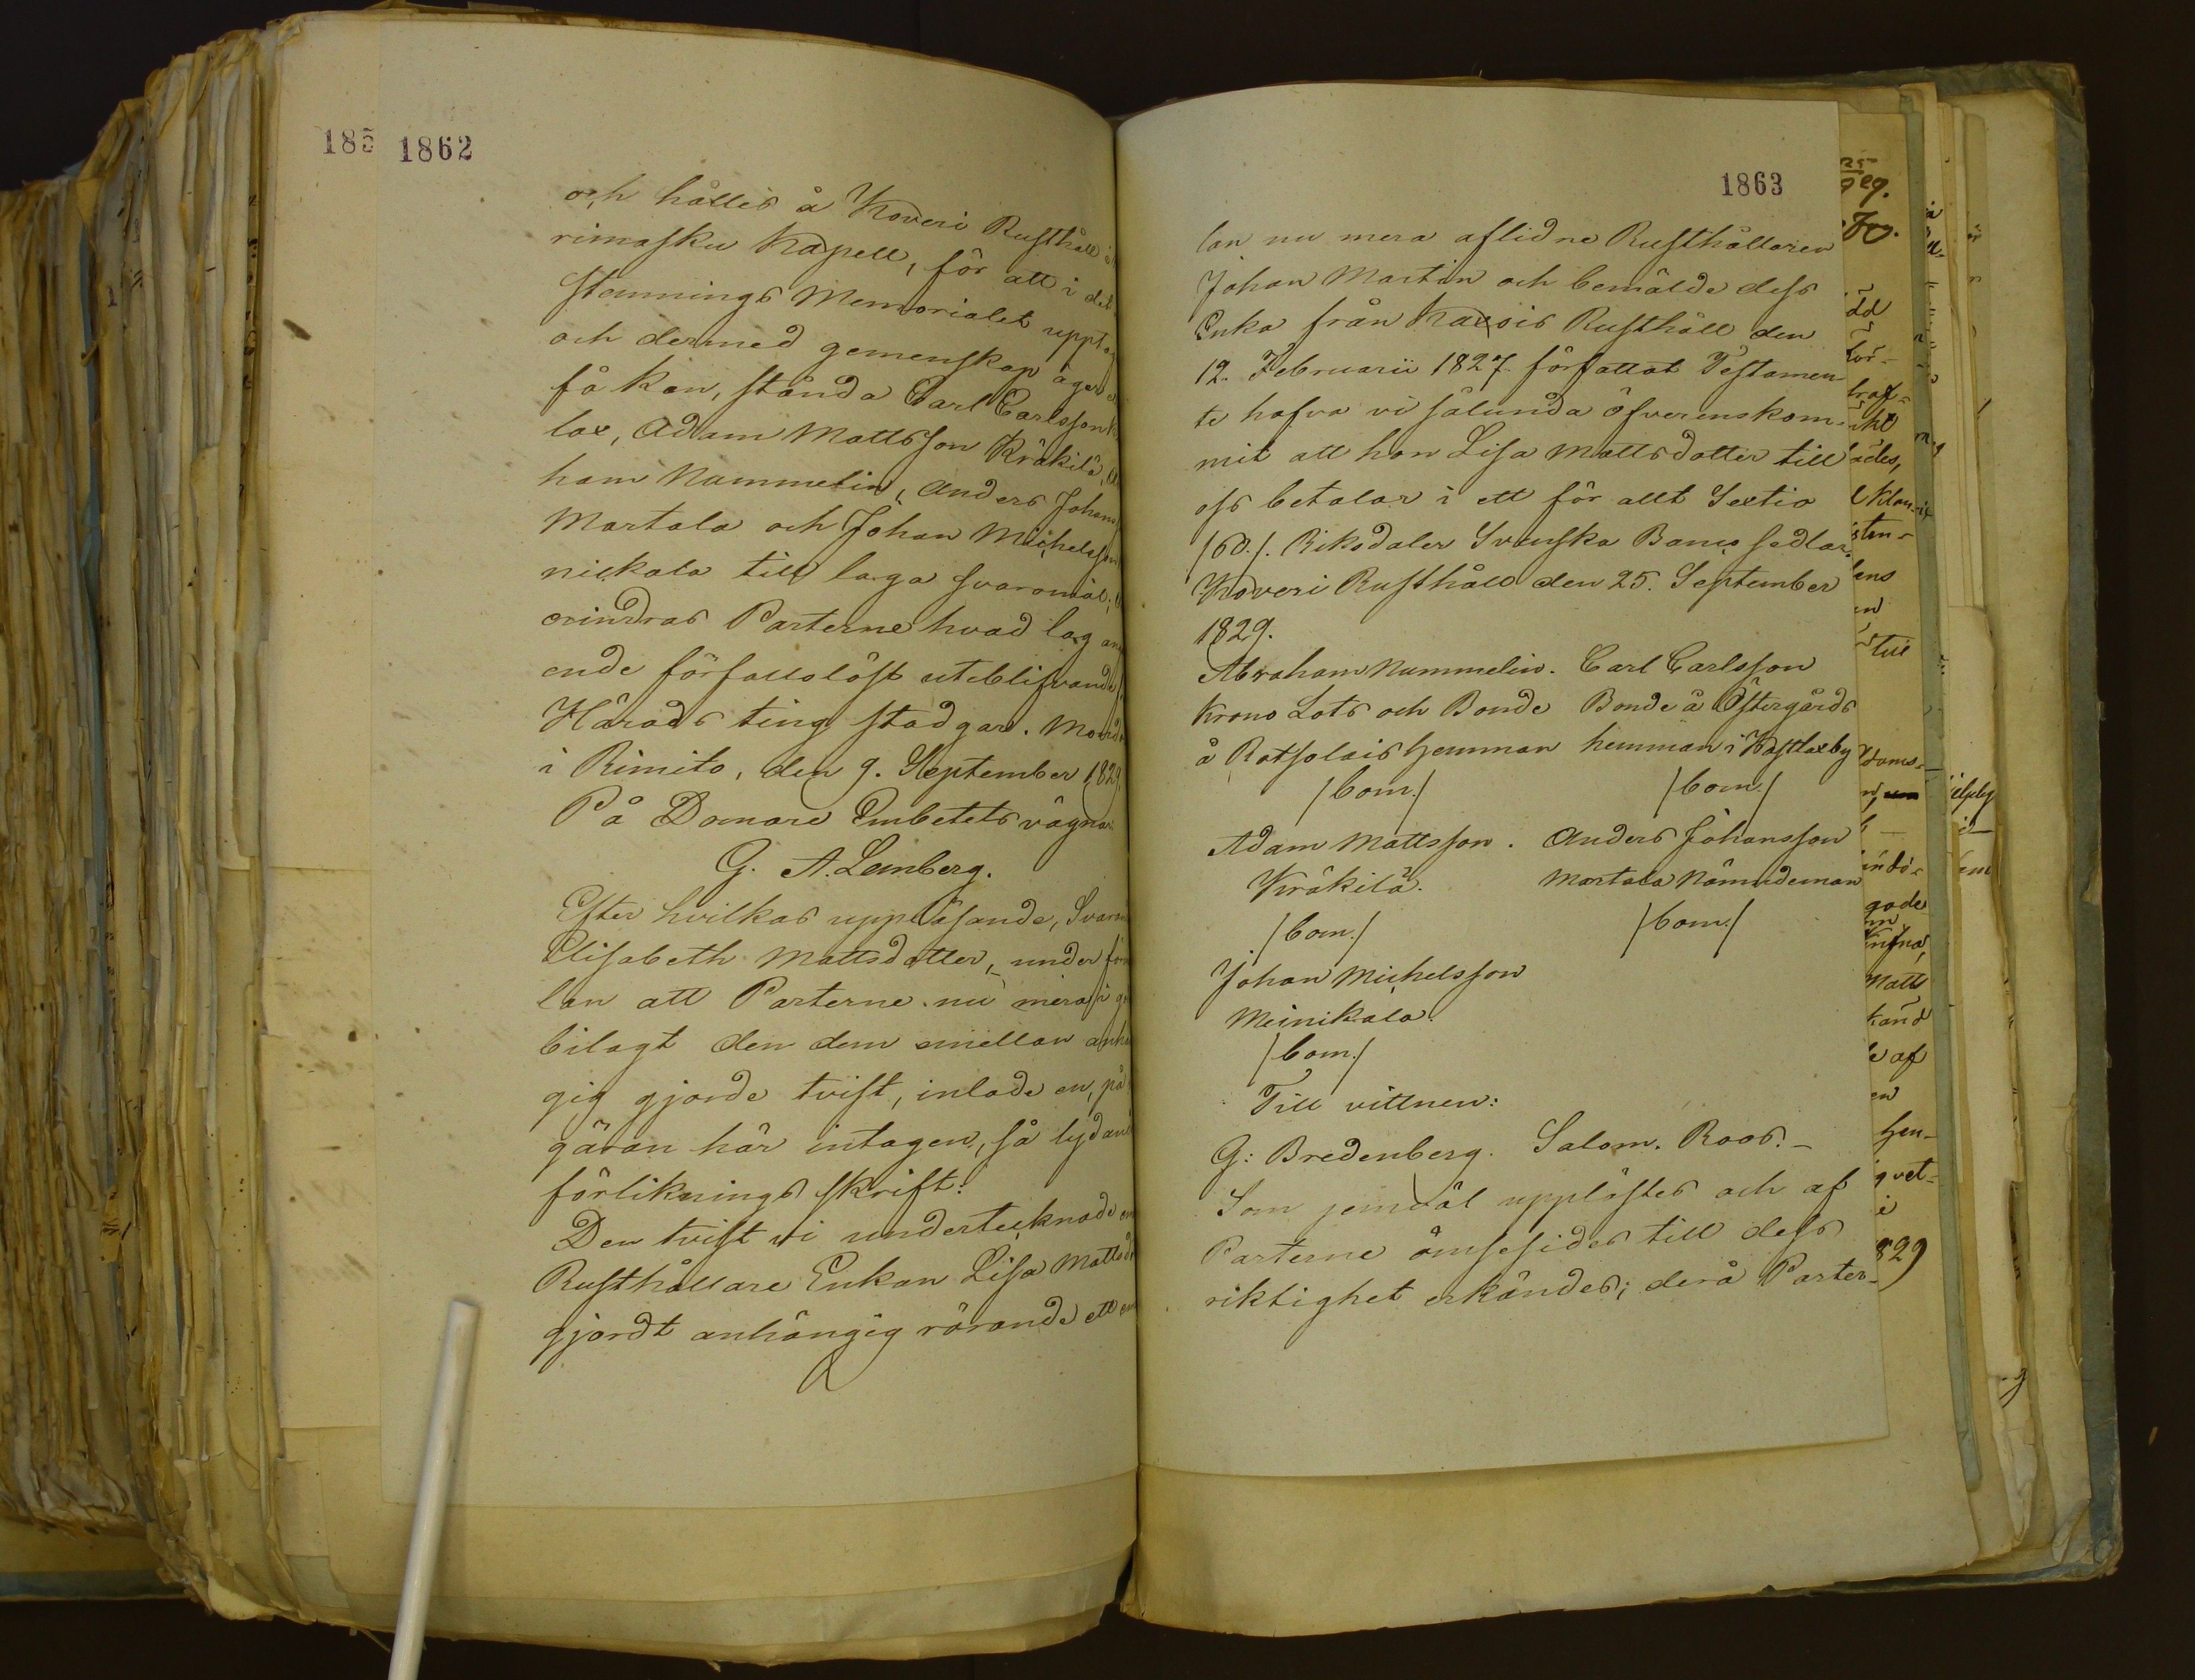 185
1862
och hålles å Koveri Rusthåll i
rimasku Kapell, för att i det
stemnings Memorialet upptag
och dermed gemenskap äger
få kan, stånda Carl Carlsson
lax, Adam Mattsson Kräkilä,
ham Nummelin, Anders Johans
Martala och Johan Michelsson
nikala till laga svaromål;
erindras Parterne hvad lag an
ende förfallolöst uteblifvande
Härads ting stadgar.
i Rimito, den 9. September 1829.
På Domare Embetets vägnar
G. A. Lemberg.
Efter hvilkas uppläsande, Svar
Elisabeth Mattsdotter, under för
lan att Parterne nu mera i
bilagt den dem emellan anhä
gig gjorde tvist, inlade en, på
gäran här intagen, så lydan
förliknings skrift:
Den tvist vi undertecknade
Rusthållare Enkan Lisa Mattsd
gjordt anhängig rörande ett
1863
lan nu mera aflidne Rusthållaren
Johan Martin och bemälde dess
Enka från Kaxois Rusthåll den
12. Februarii 1827. författat Testamen
te hafva vi sålunda öfverenskom-
mit att hon Lisa Mattsdotter till
oss betalar i ett för allt Sextio
/60./. Riksdaler Svenska Banco sedlar.
Koveri Rusthåll den 25. September
1829.
Abraham Nummelin. Carl Carlsson
Krono Lots och Bonde Bonde å Östergårds
å Ratsolais hemman hemman i Kastlaxby
/bom./ /bom./
Adam Mattsson. Anders Johansson
Kräkilä. Martala Nämndeman
/bom./ /bom./
Johan Michelsson
Meinikala.
/bom./
Till vittnen:
G: Bredenberg. Salom. Roos.-
Som jemväl upplästes och af
Parterne ömsesides till dess
riktighet erkändes; derå Parter-